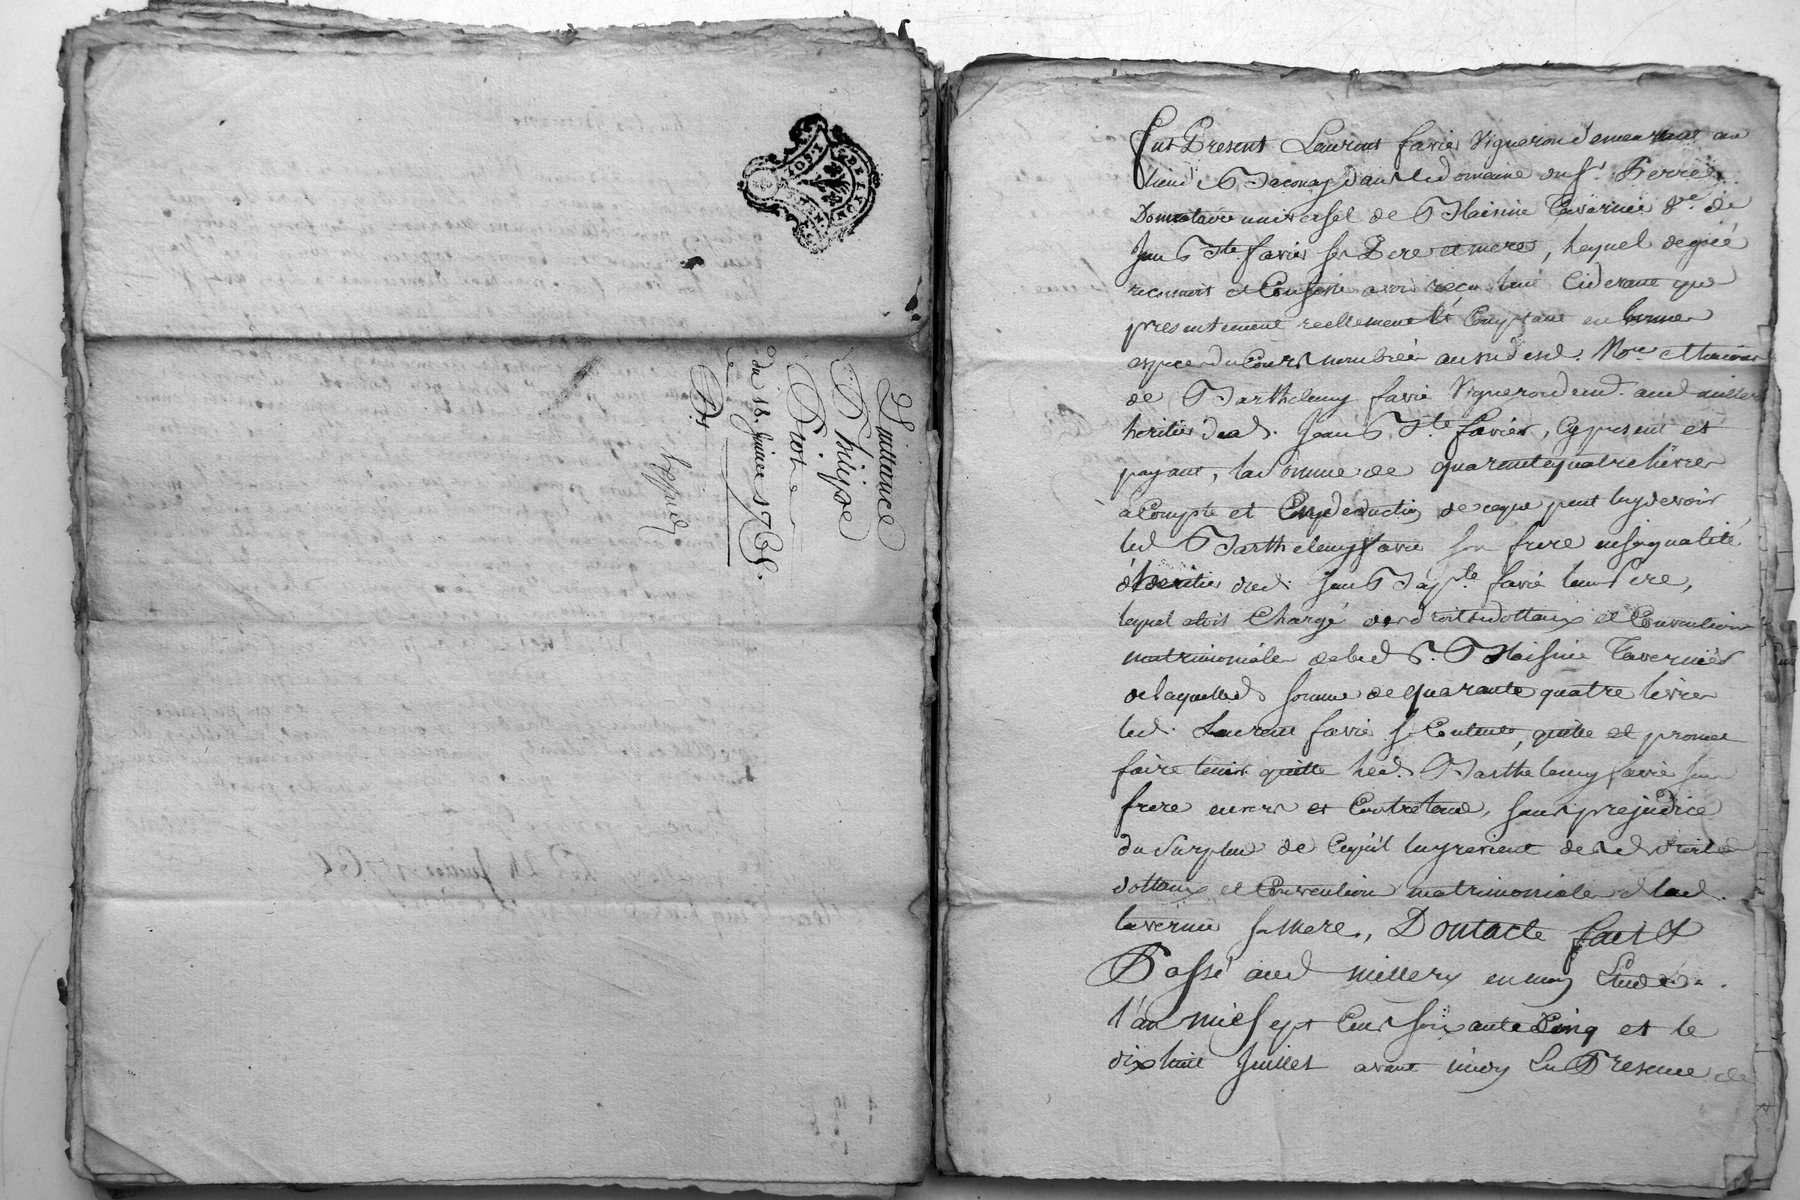 Quittence
Philippe
Piot
du 18 Juillet 1765.
Fut Present Laurent favier Vigneron demeurant au
lieu de Taconay dans le domaine du Sr. Perret
Donnataire universel de Blaisine Tavernier Ve. de
Jean Bte favier ses Pere et mere, lequel de gré
reconnoit et Confesse avoir reçu tant Cidevant que
presentement reellement et Comptant en bonnes
especes du Cours nombrées au vu desd. Nore et témoins
de Barthelemy favié Vigneron demt. aud millery
heritier dud. Jean Bte favier, Cy present et
payant, la Somme de quarente quatre livres
à Compte et En deduction de ce que peut luy devoir
led Barthelemy favié son frere en sa qualité
d'heritier dud. Jean Bapte favié leur Pere,
lequel etoit Chargé des droits dottaux et Conventions
matrimoniale de lad. Blaisine Tavernier
de laquelle d. somme de quarante quatre livres
led. Laurent favié se Contente, quitte et promet
faire tenir quitte led. Barthelemy favié son
frere envers et Contre tous, sans prejudice
du Surplus de Ce qu'il luy revient desd. droits
dottaux et Convention matrimoniale de lad.
tavernier sa Mere, Dont acte fait &
Passé aud millery en mon Etude
l'an mil sept Cent soixante Cinq et le
dix huit Juillet avant midy En Presence de